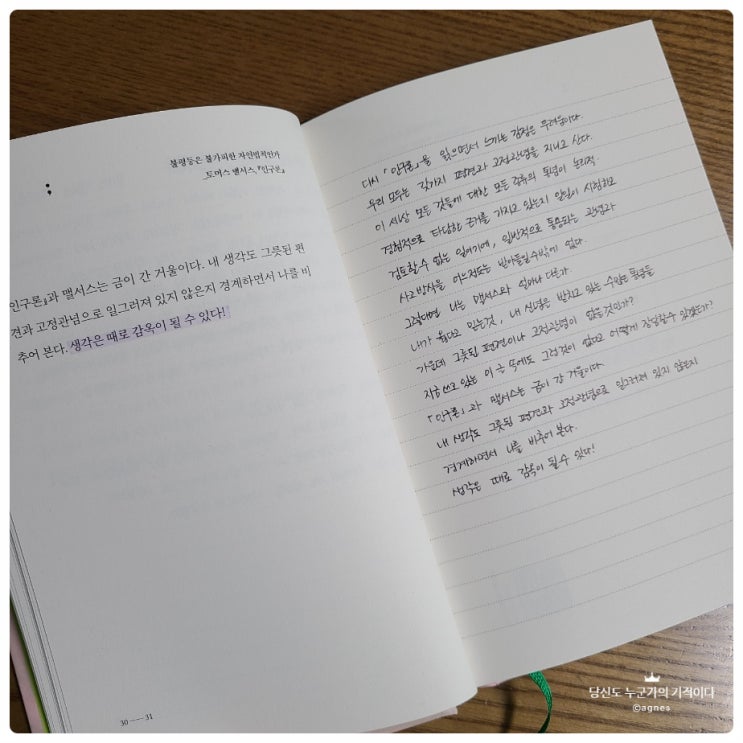 불평등은 불가피한 자연법칙인가
토머스 맬서스, 『인구론』
;
인구론』과 맬서스는 금이 간 거울이다. 내 생각도 그릇된 편
견과 고정관념으로 일그러져 있지 않은지 경계하면서 나를 비
추어 본다. 생각은 때로 감옥이 될 수 있다!
30 — 31
다시 「인구론」을 읽으면서 느끼는 감정은 두려움이다.
우리 모두는 갖가지 편견과 고정관념을 지니고 산다.
이 세상 모든 것들에 대한 모든 종류의 통념이 논리적
경험적으로 타당한 근거를 가지고 있는지 일일이 시험하고
검토할 수 없는 일이기에, 일반적으로 통용되는 관념과
사고방식을 어느정도는 받아들일 수밖에 없다.
그렇다면 나는 맬서스와 얼마나 다른가.
내가 옳다고 믿는것, 내 신념을 받치고 있는 수많은 통념들
가운데 그릇된 편견이나 고정관념이 없을것인가?
지금 쓰고 있는 이 글 속에도 그런것이 없다고 어떻게 장담할 수 있겠는가?
「인구론」과 맬서스는 금이 간 거울이다.
내 생각도 그릇된 편견과 고정관념으로 일그러져 있지 않은지
경계하면서 나를 비추어 본다.
생각은 때로 감옥이 될 수 있다!
당신도 누군가의 기적이다
©agnes